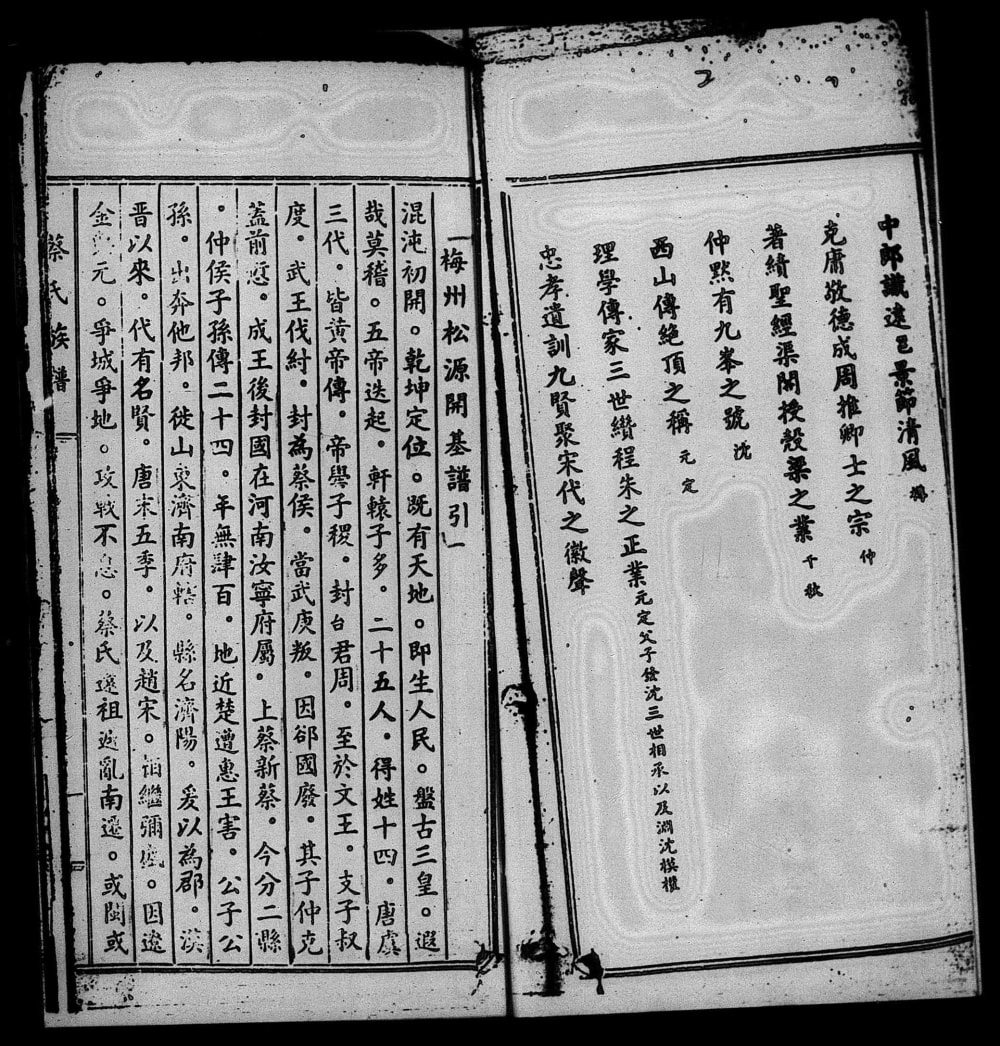 2
中郎議違邑景節清風
克庸敬德成周推卿士之宗 仲
著績聖經渠閣授殼梁之業 千秋
仲默有九峯之號 沈
西山傳絕頂之稱 元定
理學傳家三世纘程朱之正業 元定父子 沈三世相承以及淵沈模
忠孝遺訓九賢聚宋代之徽聲
梅州松源開基譜引
混沌初開。乾坤定位。既有天地。即生人民。盤古三皇。遐
哉莫稽。五帝迭起。軒轅子多。二十五人。得姓十四。唐虞
三代。皆黃帝傳。帝嚳子稷。封台君周。至於文王。支子叔
度。武王伐紂。封為蔡侯。當武庚叛。因郤國廢。其子仲克
蓋前愆。成王後封國在河南汝寧府屬。上蔡新蔡。今分二縣
。仲侯子孫傳二十四。年無肆百。地近楚遭惠王害。公子公
孫。出奔他邦。徙山東濟南府轄。縣名濟陽。爰以為郡。漢
晋以來。代有名賢。唐末五季。以及趙宋。繼彌。因遼
金元。爭城爭地。攻戰不息。蔡氏遠祖避亂南遷。或閩或
蔡氏族譜